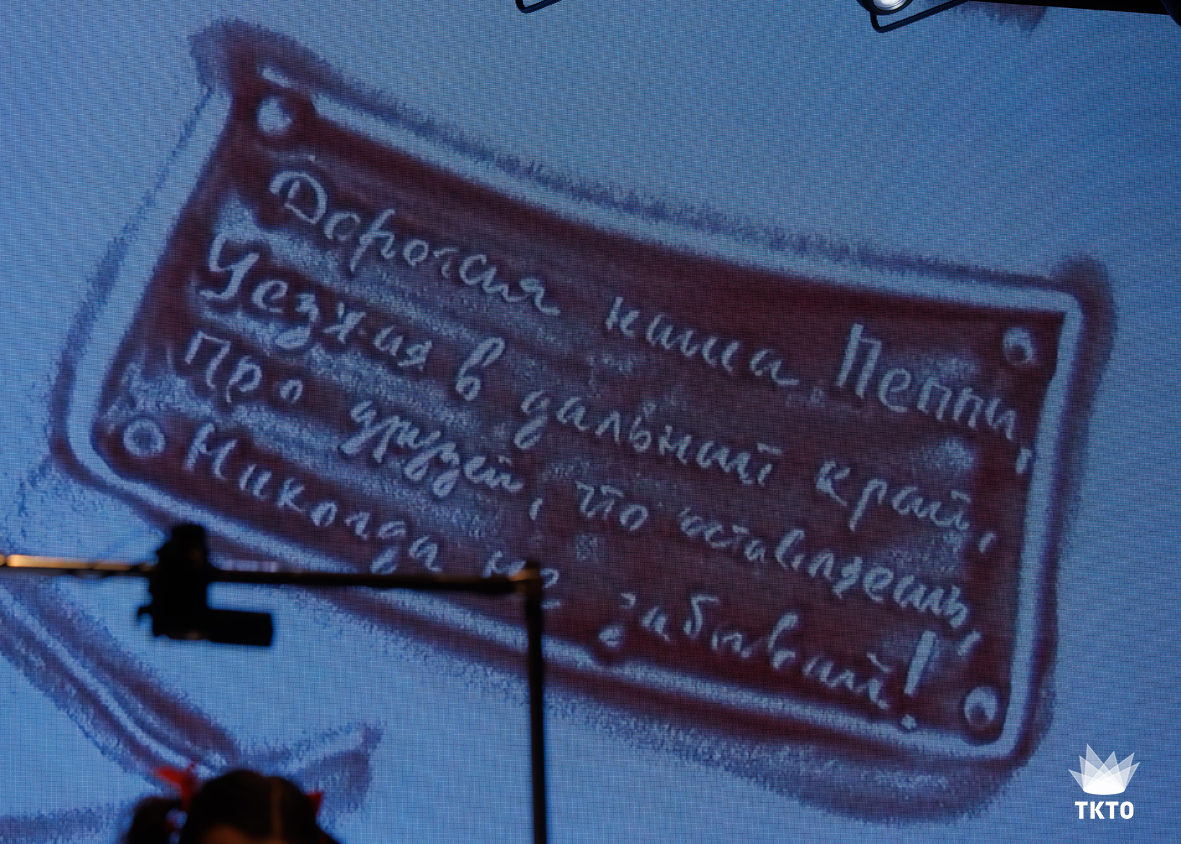 Дорогая наша Пеппи,
Уезжая в дальний край,
Про друзей, что оставляешь,
Никогда не забывай!
ТКТО